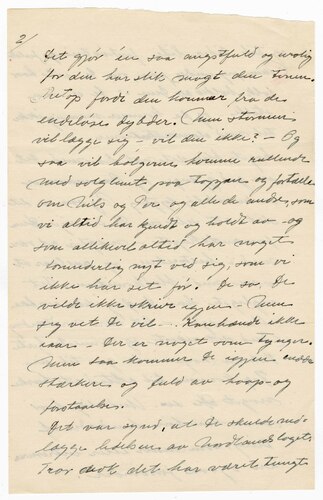 2/
Det gjør én saa angstfuld og urolig
for den har slik magt den tonen.
Netop fordi den kommer fra de
endeløse dybder. Men stormen
vil lægge sig – vil den ikke? – Og
saa vil bølgerne komme rullende
med solglimt paa toppen og fortælle
om Nils og Per og alle de andre, som
vi altid har kjendt og holdt av – og
som allikevel altid har noget
forunderlig nyt ved sig, som vi
ikke har set før. De sa, De
vilde ikke skrive igjen – Men
jeg vet De vil – . Kanhænde ikke
iaar – Der er noget som tynger.
Men saa kommer De igjen endda
stærkere og fuld av haap – og
forstaaelse.
Det var synd, at De skulde ned-
lægge ledelsen av Nordlandslaget.
Tror nok det har været tungt